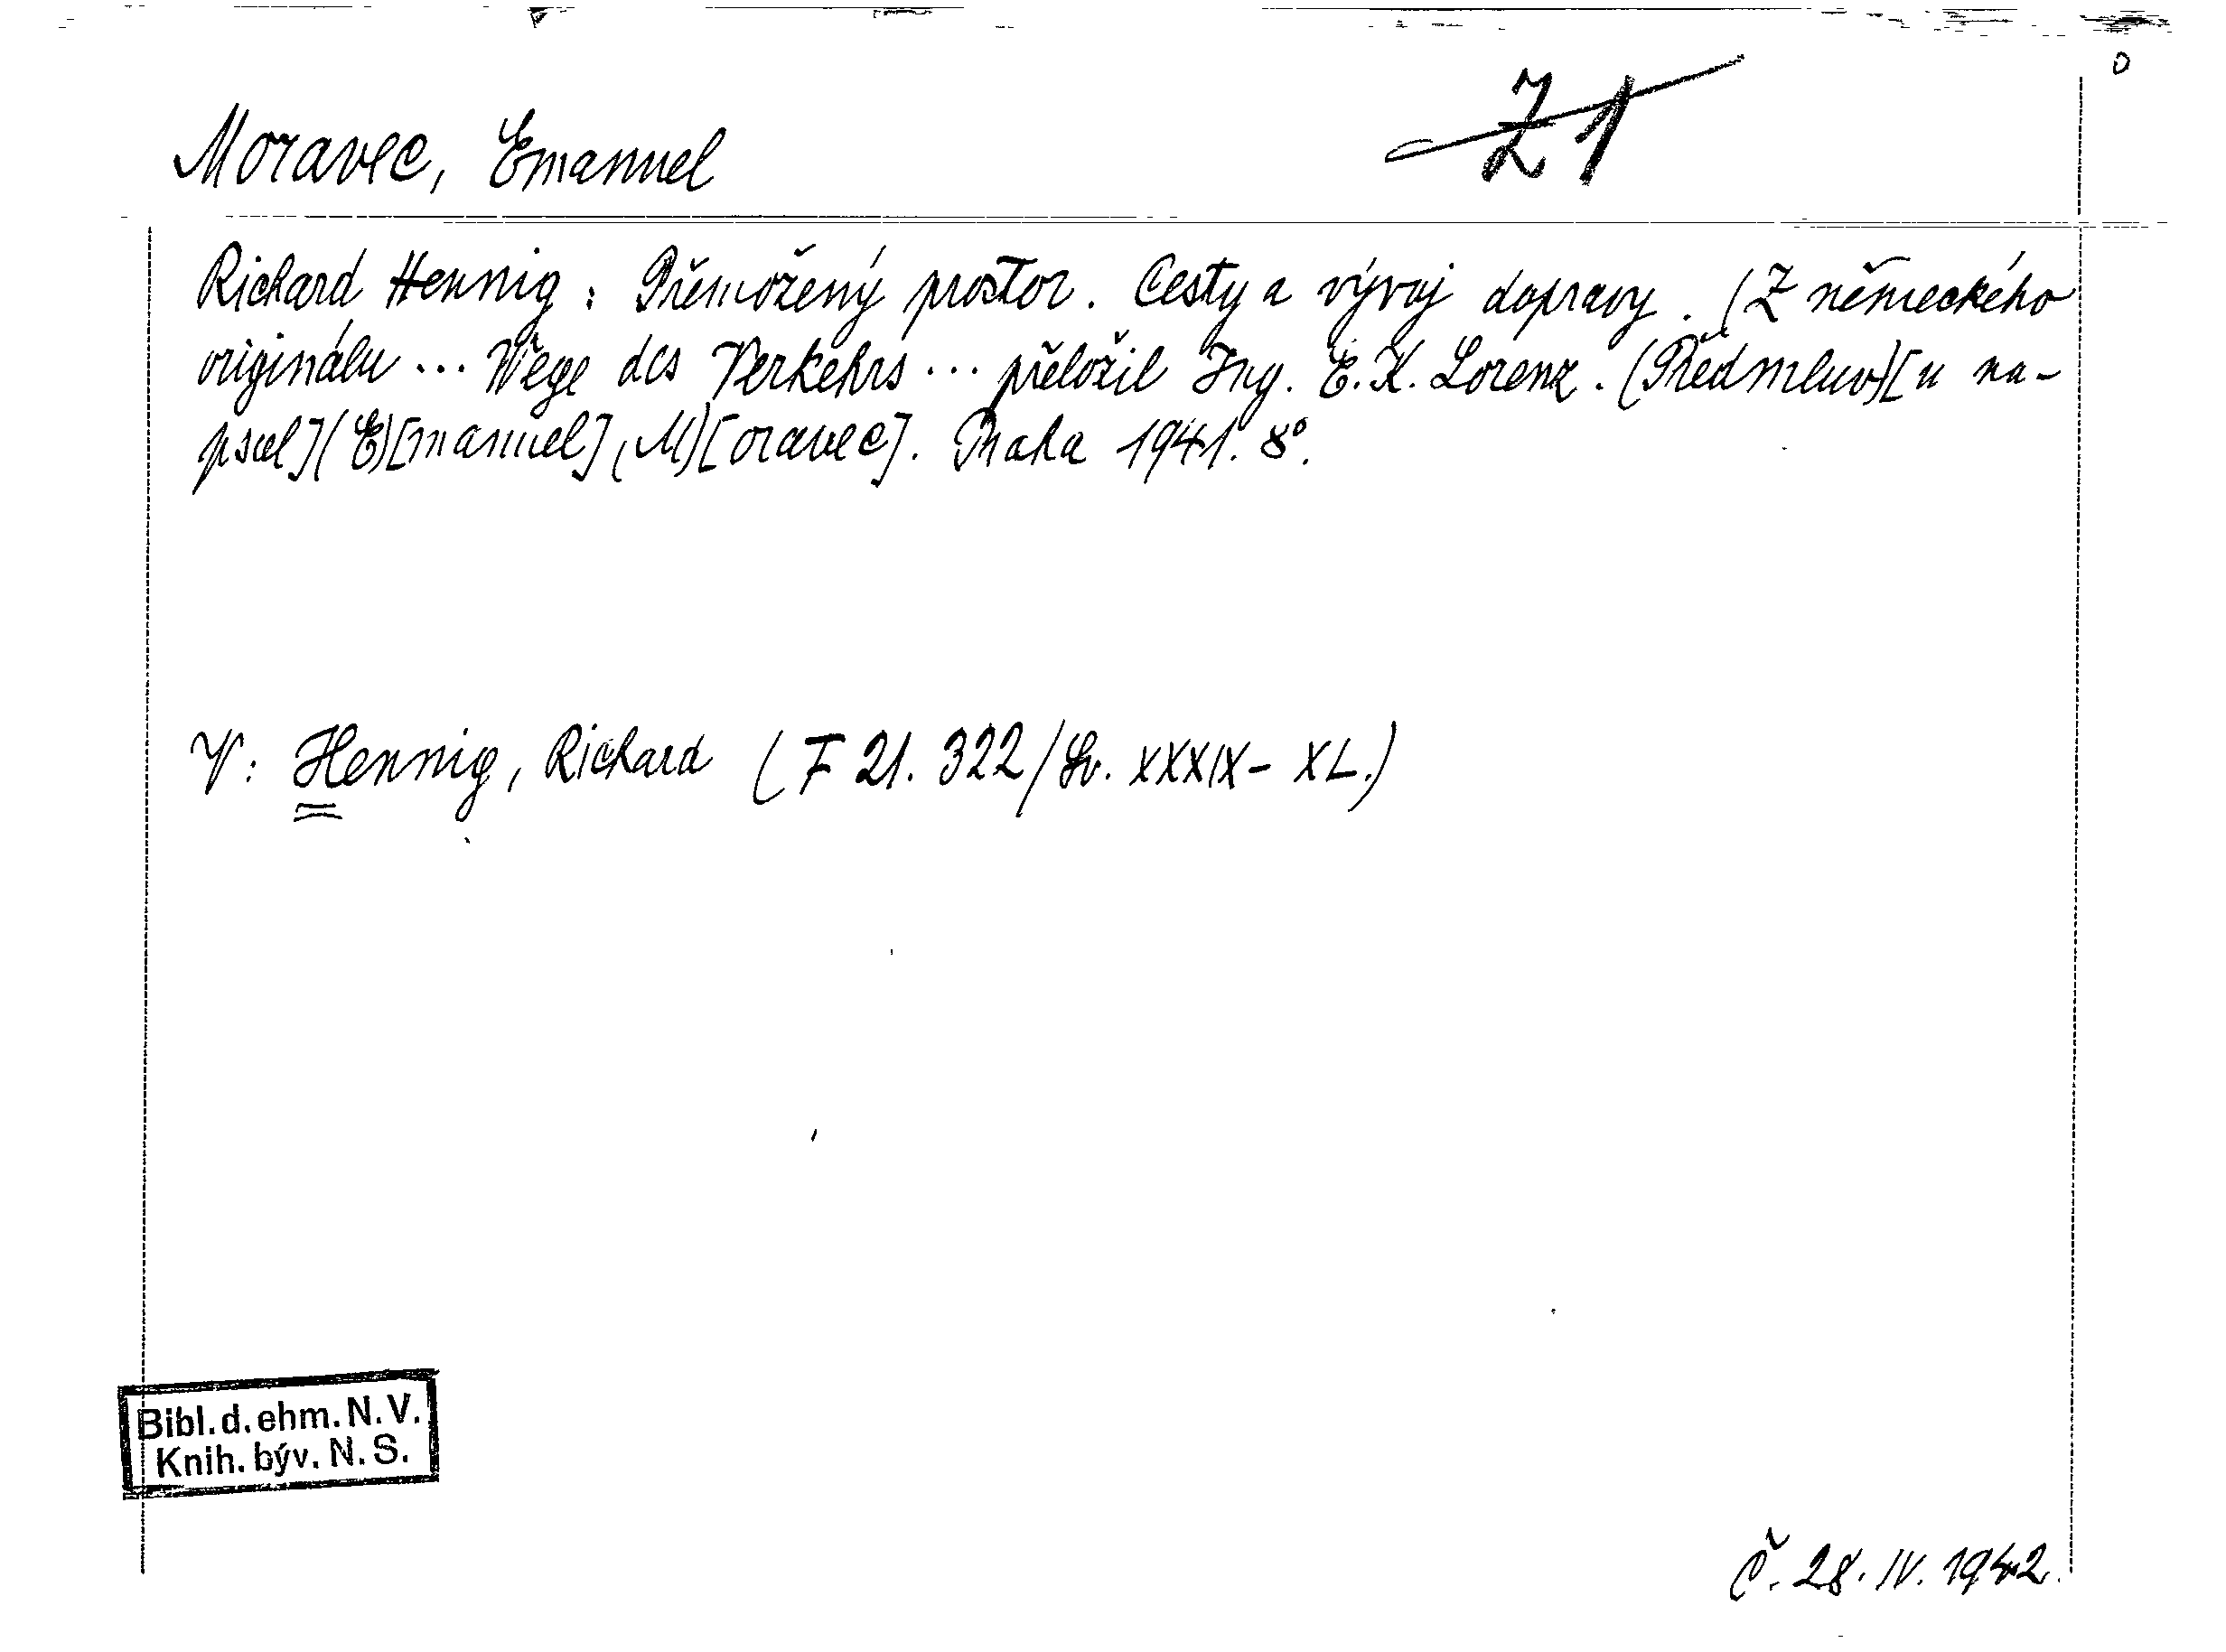 Moravec, Emanuel
Z1
Richard Hennig : Přemožený prostor. Cesty a vývoj dopravy. (Z německého
originálu ... Wege des Verkehrs ... přeložil Ing. E. K. Lorenz. (Předmluv)[u na-
psal](E)[manuel], M)[oravec]. Praha 1941. 8°.
V: Hennig, Richard (F 21. 322/Sv. XXXIX - XL.)
Bibl. d. ehm. N. V.
Knih. býv. N. S.
Č. 28. IV. 1942.